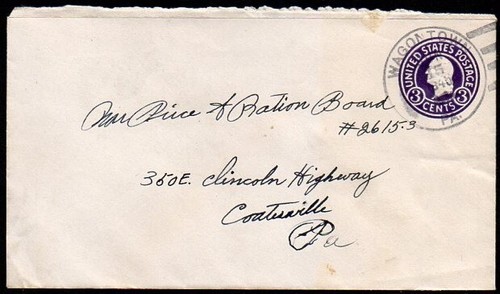 WAGONTOWN
PA.
UNITED STATES POSTAGE
3 CENTS 3
War Price & Ration Board
#2615-3
350 E. Lincoln Highway
Coatesville
Pa